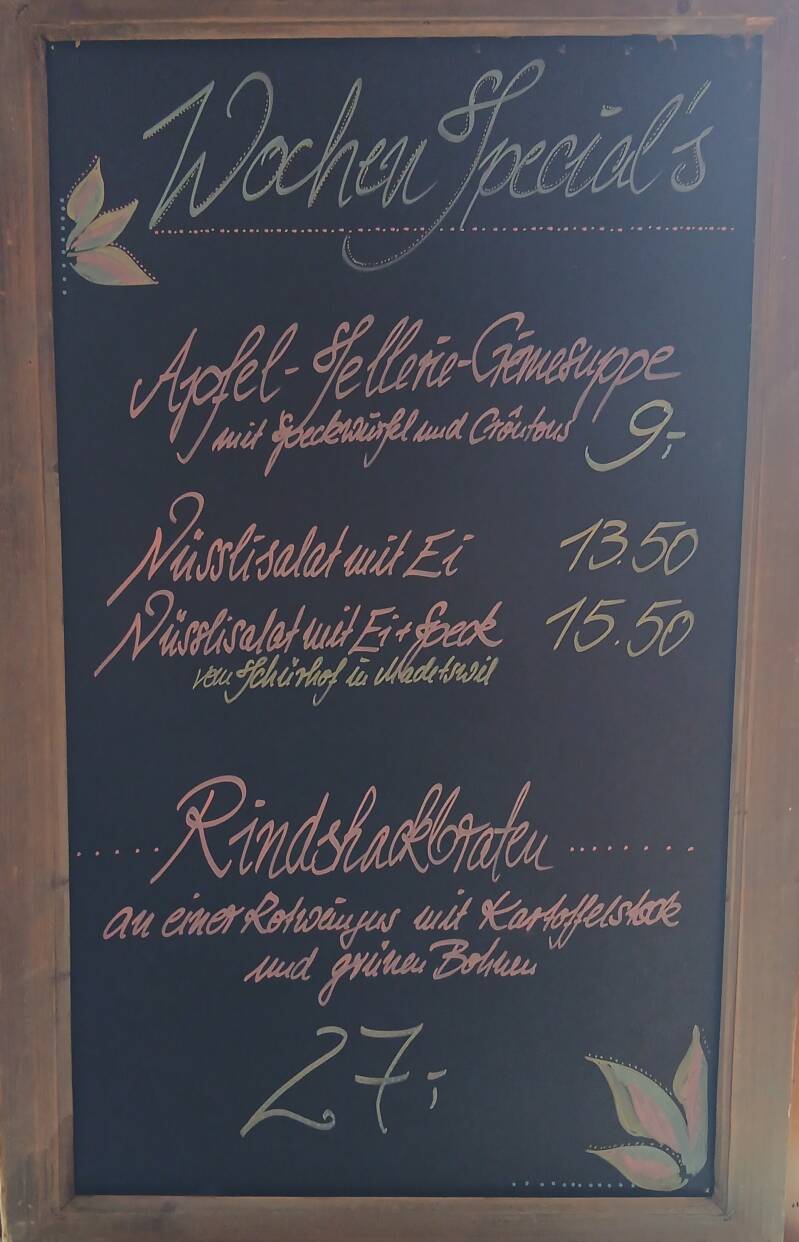 Wochen Special's
Apfel-Sellerie-Crèmesuppe
mit Speckwürfel und Croûtons 9,-
Nüsslisalat mit Ei 13.50
Nüsslisalat mit Ei + Speck 15.50
vom Schürhof in Madetswil
Rindshackbraten
an einer Rotweinjus mit Kartoffelstock
und grünen Bohnen
27,-